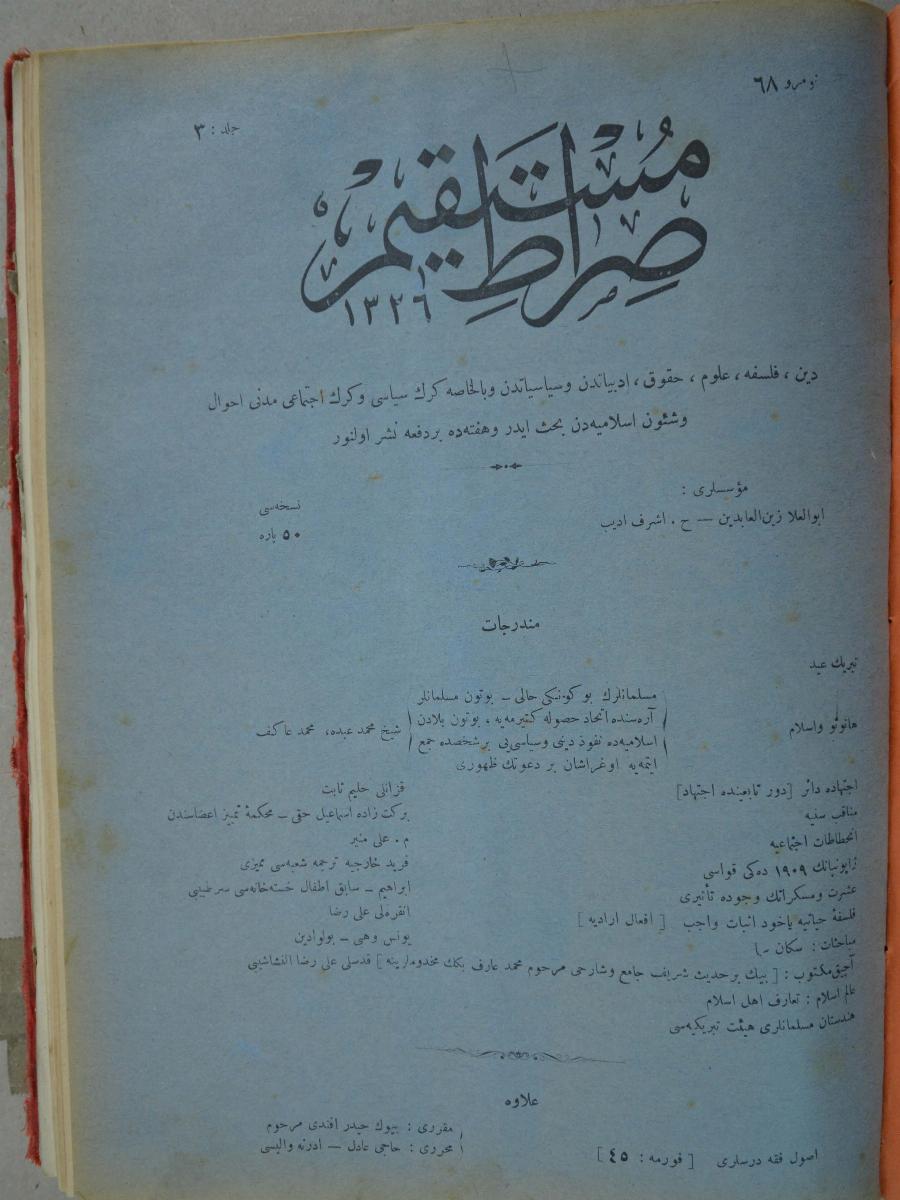 نومرو ٦٨
جلد : ٣
صِراطِ مُسْتَقیم
١٣٢٦
دین ، فلسفه ، علوم ، حقوق ، ادبیاتدن وسیاسیاتدن وبالخاصه كرك سیاسی وكرك اجتماعی مدنی احوال
وشئون اسلامیه‌دن بحث ایدر وهفته‌ده بردفعه نشر اولنور
مؤسسلری :
ابوالعلا زین‌العابدین — ح . اشرف ادیب
نسخه‌سی
٥٠ پاره
مندرجات
تبریك عید
هانوتو واسلام
مسلمانلرك بو كونكی حالی — بوتون مسلمانلر
آره‌سنده اتحاد حصوله كتیرمه‌یه ، بوتون بلادن
اسلامیه‌ده نفوذ دینی وسیاسی‌یی برشخصده جمع
ایتمه‌یه اوغراشان بر دعوتك ظهوری
شیخ محمد عبده، محمد عاكف
اجتهاده دائر [دور تابعینده اجتهاد] قزانلی حلیم ثابت
مناقب سنیه بركت زاده اسماعیل حقی — محكمهٔ تمییز اعضاسندن
انحطاطات اجتماعیه م . علی منبر
ژاپونیانك ١٩٠٩ ده‌كی قواسی فرید خارجیه ترجمه شعبه‌سی ممیزی
عشرت ومسكراتك وجوده تأثیری ابراهیم — سابق اطفال خسته‌خانه‌سی سرطبیبی
فلسفهٔ حیاتیه یاخود اثبات واجب [ افعال ارادیه ] انقره‌لی علی رضا
مباحثات : سكان سما یونس وهبی — بولوادین
آچیق مكتوب : [ بیك برحدیث شریف جامع وشارحی مرحوم محمد عارف بكك مخدوملرینه ] قدسلی علی رضا النشاشیبی
عالم اسلام : تعارف اهل اسلام
هندستان مسلمانلری هیئت تبریكیه‌سی
علاوه
اصول فقه درسلری [ فورمه : ٤٥ ]
مقرری : بیوك حیدر افندی مرحوم
محرری : حاجی عادل — ادرنه والیسی